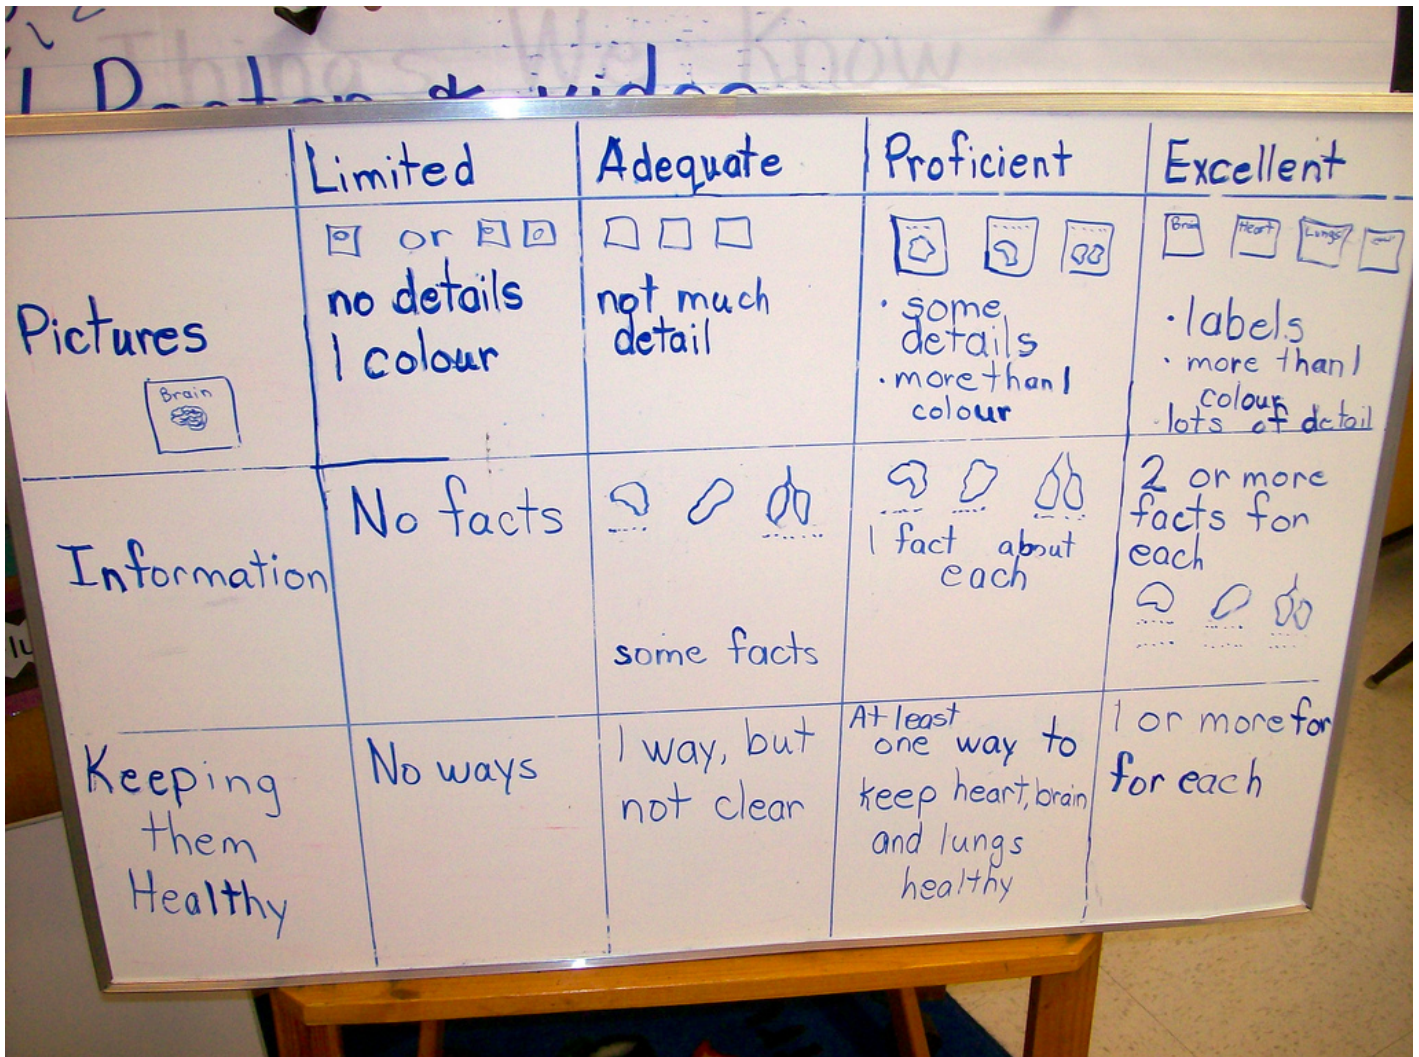 Things We Know
Doctor & video
Limited
Adequate
Proficient
Excellent
Pictures
Brain
or
no details
1 colour
not much
detail
• some
details
• more than 1
colour
Brain
Heart
Lungs
• labels
• more than 1
colour
lots of detail
Information
No facts
some facts
1 fact about
each
2 or more
facts for
each
Keeping
them
Healthy
No ways
1 way, but
not clear
At least
one way to
keep heart, brain
and lungs
healthy
1 or more for
for each